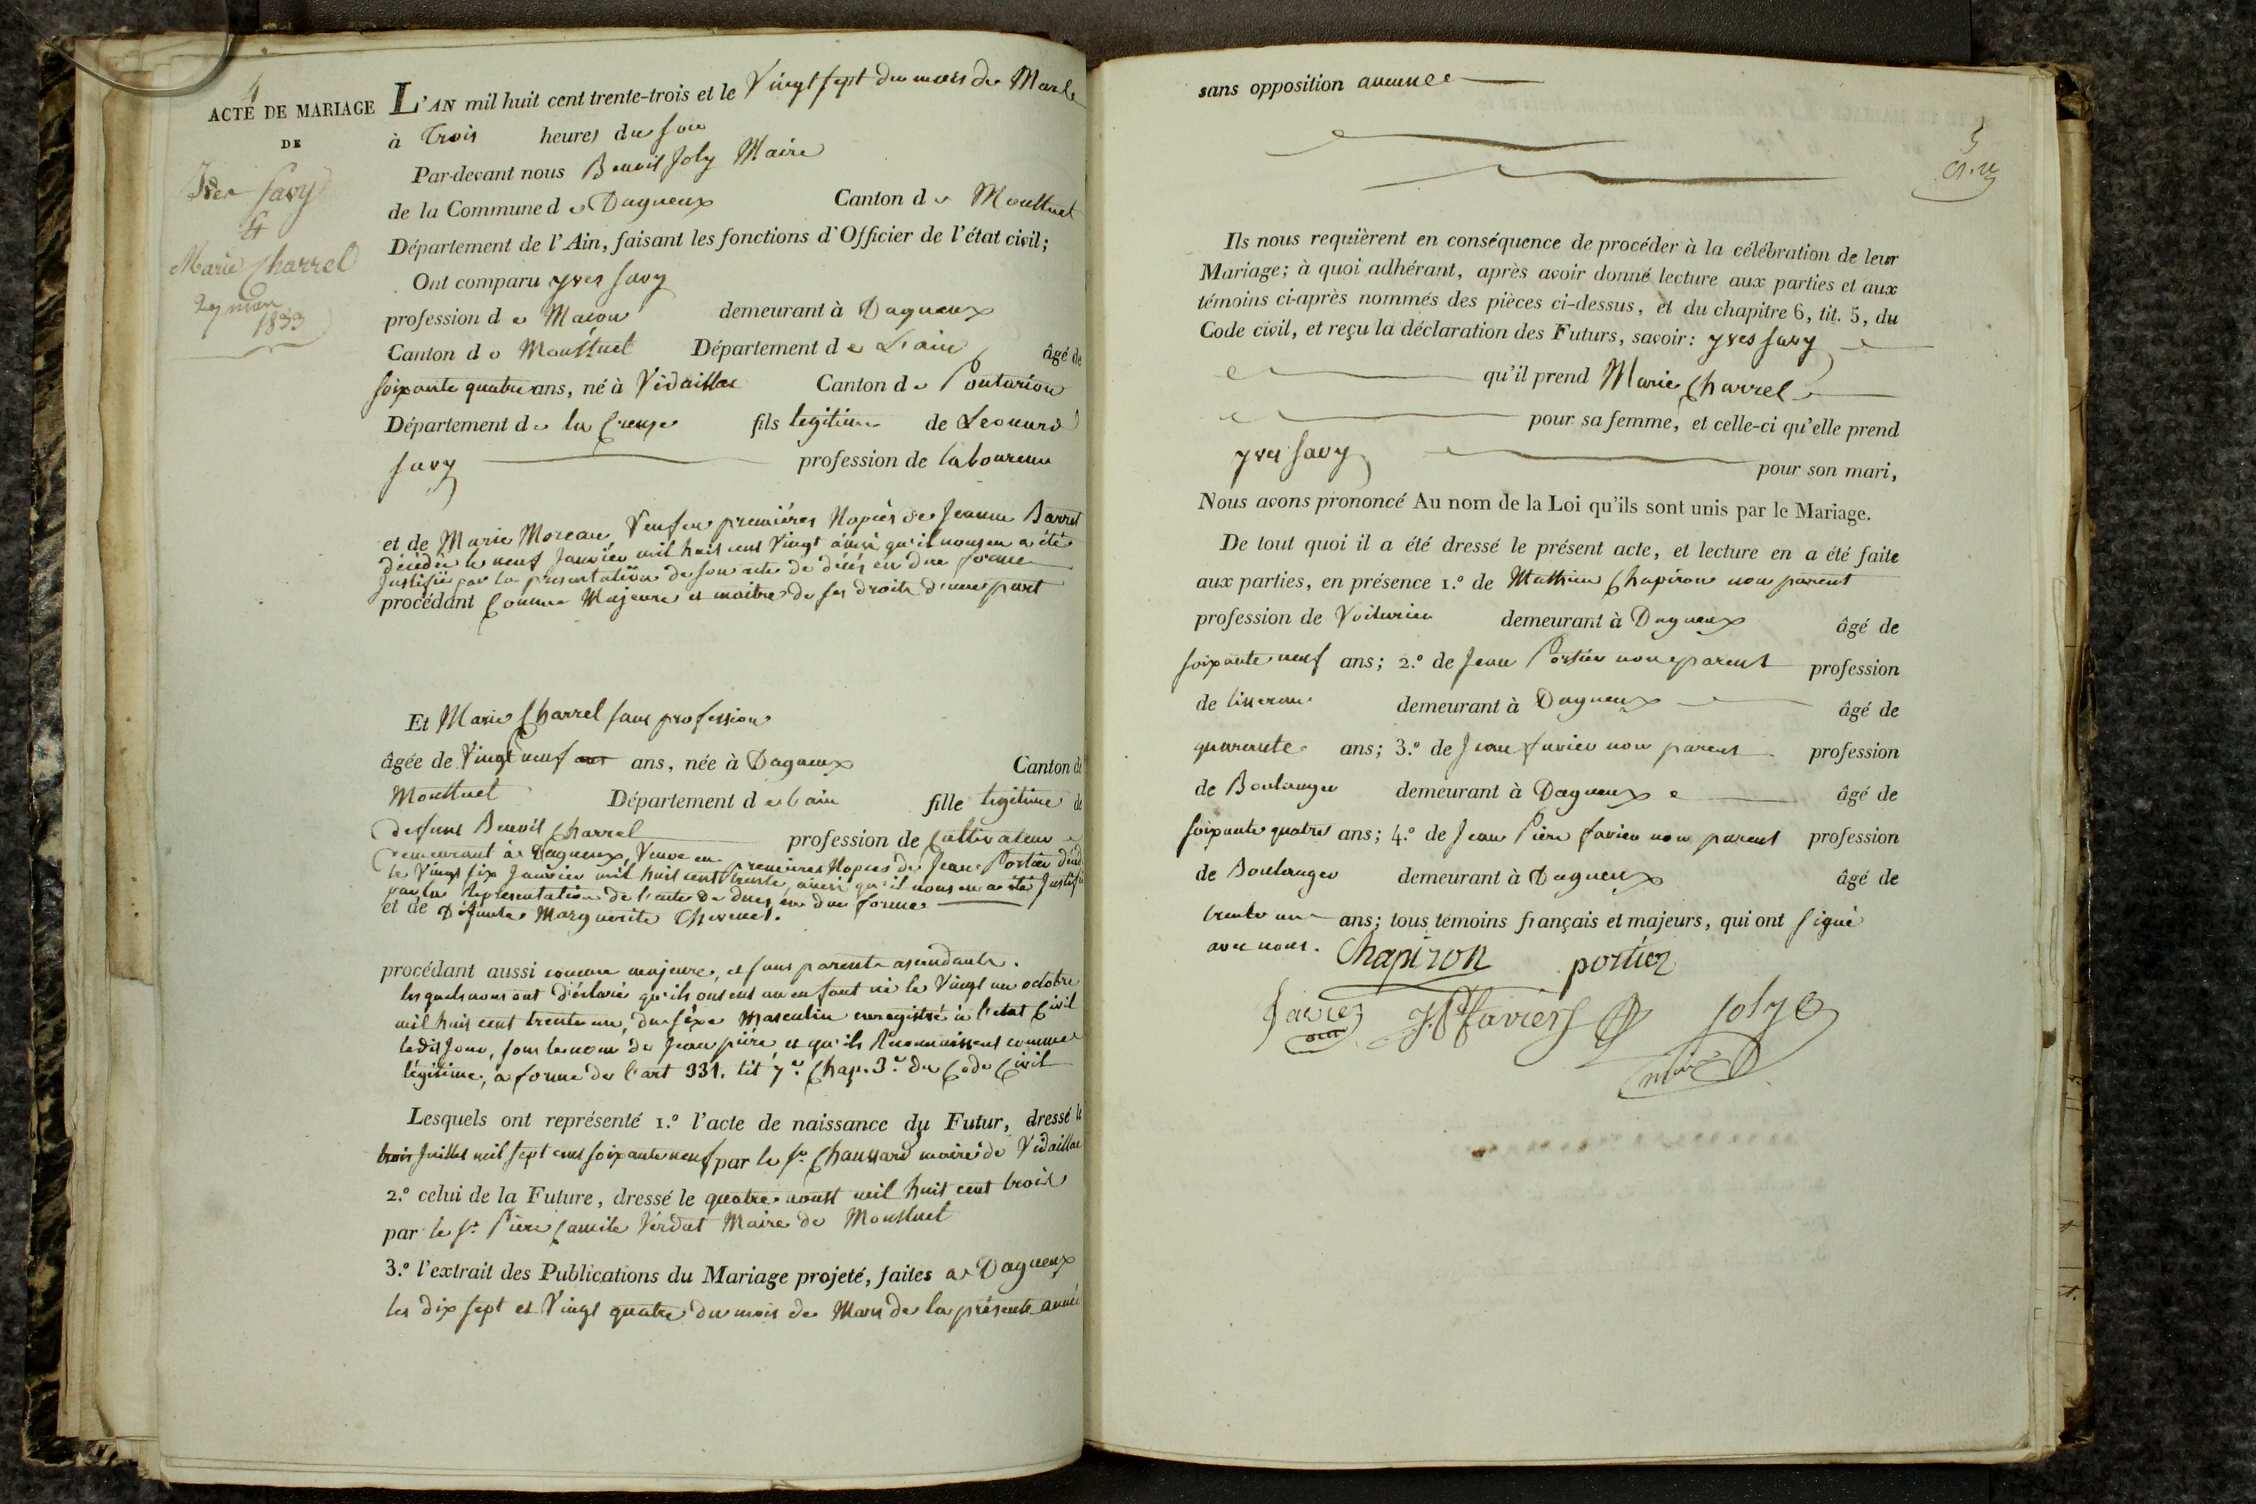 4
ACTE DE MARIAGE
DE
Yves Savy
&
Marie Charrel
27 mars
1833
L'AN mil huit cent trente-trois et le Vingt sept du mois de Mars
à Trois heures du soir
Par-devant nous Benoit Joly Maire
de la Commune de Dagneux Canton de Montluel
Département de l'Ain, faisant les fonctions d'Officier de l'état civil;
Ont comparu yves Savy
profession de Maçon demeurant à Dagneux
Canton de Montluel Département de L'ain âgé de
soixante quatre ans, né à Vidaillac Canton de Pontarion
Département de la Creuse fils legitime de Leonard
Savy profession de laboureur
et de Marie Moreau, Veuf en premières Nopces de Jeanne Barret
décédée le neuf Janvier mil huit cent Vingt ainsi qu'il nous en a été
Justifié par la presentation de son acte de décès en due forme
procédant Comme Majeur et maitre de ses droits d'une part
Et Marie Charrel sans profession
âgée de Vingt neuf ans, née à Dagneux Canton de
Montluel Département de l'ain fille legitime de
deffunt Benoit Charrel profession de Cultivateur
demeurant à Dagneux, Veuve en premieres Nopces de Jean Portier décédé
le Vingt six Janvier mil huit cent trente, ainsi qu'il nous en a été Justifié
par la Representation de l'acte de décès en due forme
et de Défunte Marguerite Thevenet.
procédant aussi comme majeure, et sans parents ascendants.
lesquels nous ont déclaré qu'ils ont eut un enfant né le Vingt un octobre
mil huit cent trente un, du séxe Masculin enregistré à l'etat Civil
ledit Jour, sous le nom de Jean piére, et qu'ils Reconnaissent comme
légitime, à forme de l'art 331. tit 7e. Chap. 3e. du Code Civil
Lesquels ont représenté 1.º l'acte de naissance du Futur, dressé le
trois Juillet mil sept cent soixante neuf par le Sr. Chaussard maire de Vidaillac
2.º celui de la Future, dressé le quatre aoust mil huit cent trois
par le Sr. Piere Camile Verdat Maire de Montluel
3.º l'extrait des Publications du Mariage projeté, faites a Dagneux
les dix sept et Vingt quatre du mois de Mars de la présente année
sans opposition aucune
5
Ils nous requièrent en conséquence de procéder à la célébration de leur
Mariage; à quoi adhérant, après avoir donné lecture aux parties et aux
témoins ci-après nommés des pièces ci-dessus, et du chapitre 6, tit. 5, du
Code civil, et reçu la déclaration des Futurs, savoir: yves Savy
qu'il prend Marie Charrel
pour sa femme, et celle-ci qu'elle prend
yves Savy pour son mari,
Nous avons prononcé Au nom de la Loi qu'ils sont unis par le Mariage.
De tout quoi il a été dressé le présent acte, et lecture en a été faite
aux parties, en présence 1.º de Mathieu Chapiron non parent
profession de Voiturier demeurant à Dagneux âgé de
soixante neuf ans; 2.º de Jean Portier non parent profession
de tisseran demeurant à Dagneux âgé de
quarante ans; 3.º de Jean favier non parent profession
de Boulanger demeurant à Dagneux âgé de
soixante quatre ans; 4.º de Jean Piere favier non parent profession
de Boulanger demeurant à Dagneux âgé de
trente un ans; tous témoins français et majeurs, qui ont signé
avec nous. Chapiron portier
favier J. P. favier Joly
mire